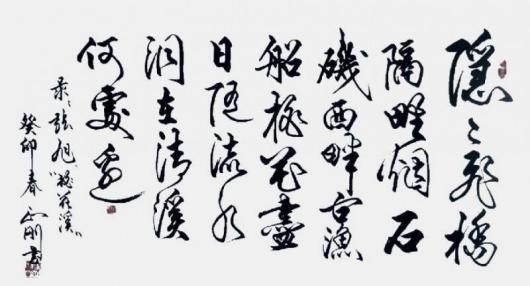 隱〻飛橋
隔野烟石
磯西畔问漁
船桃花盡
日随流水
洞在清溪
何處邊
录张旭“桃花溪”
癸卯春 刚书